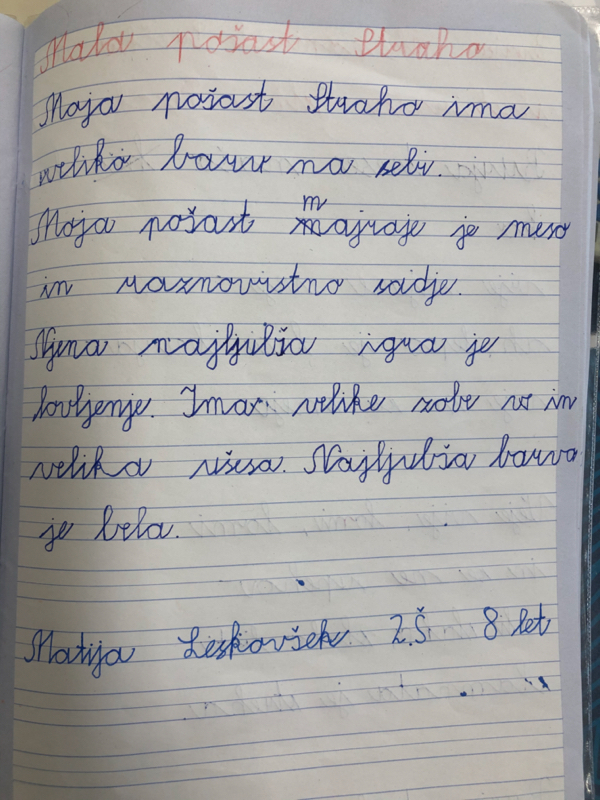 Mala pošast Straho
Moja pošast Straho ima
veliko barv na sebi.
Moja pošast majraje je meso
in raznovrstno sadje.
Njena najljubša igra je
lovljenje. Ima velike zobe in
velika ušesa. Najljubša barva
je bela.
Matija Leskovšek 2.Š 8 let